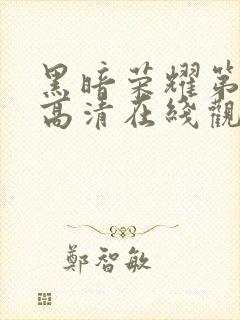 黑暗荣耀第
高清在线觀
鄭智敏